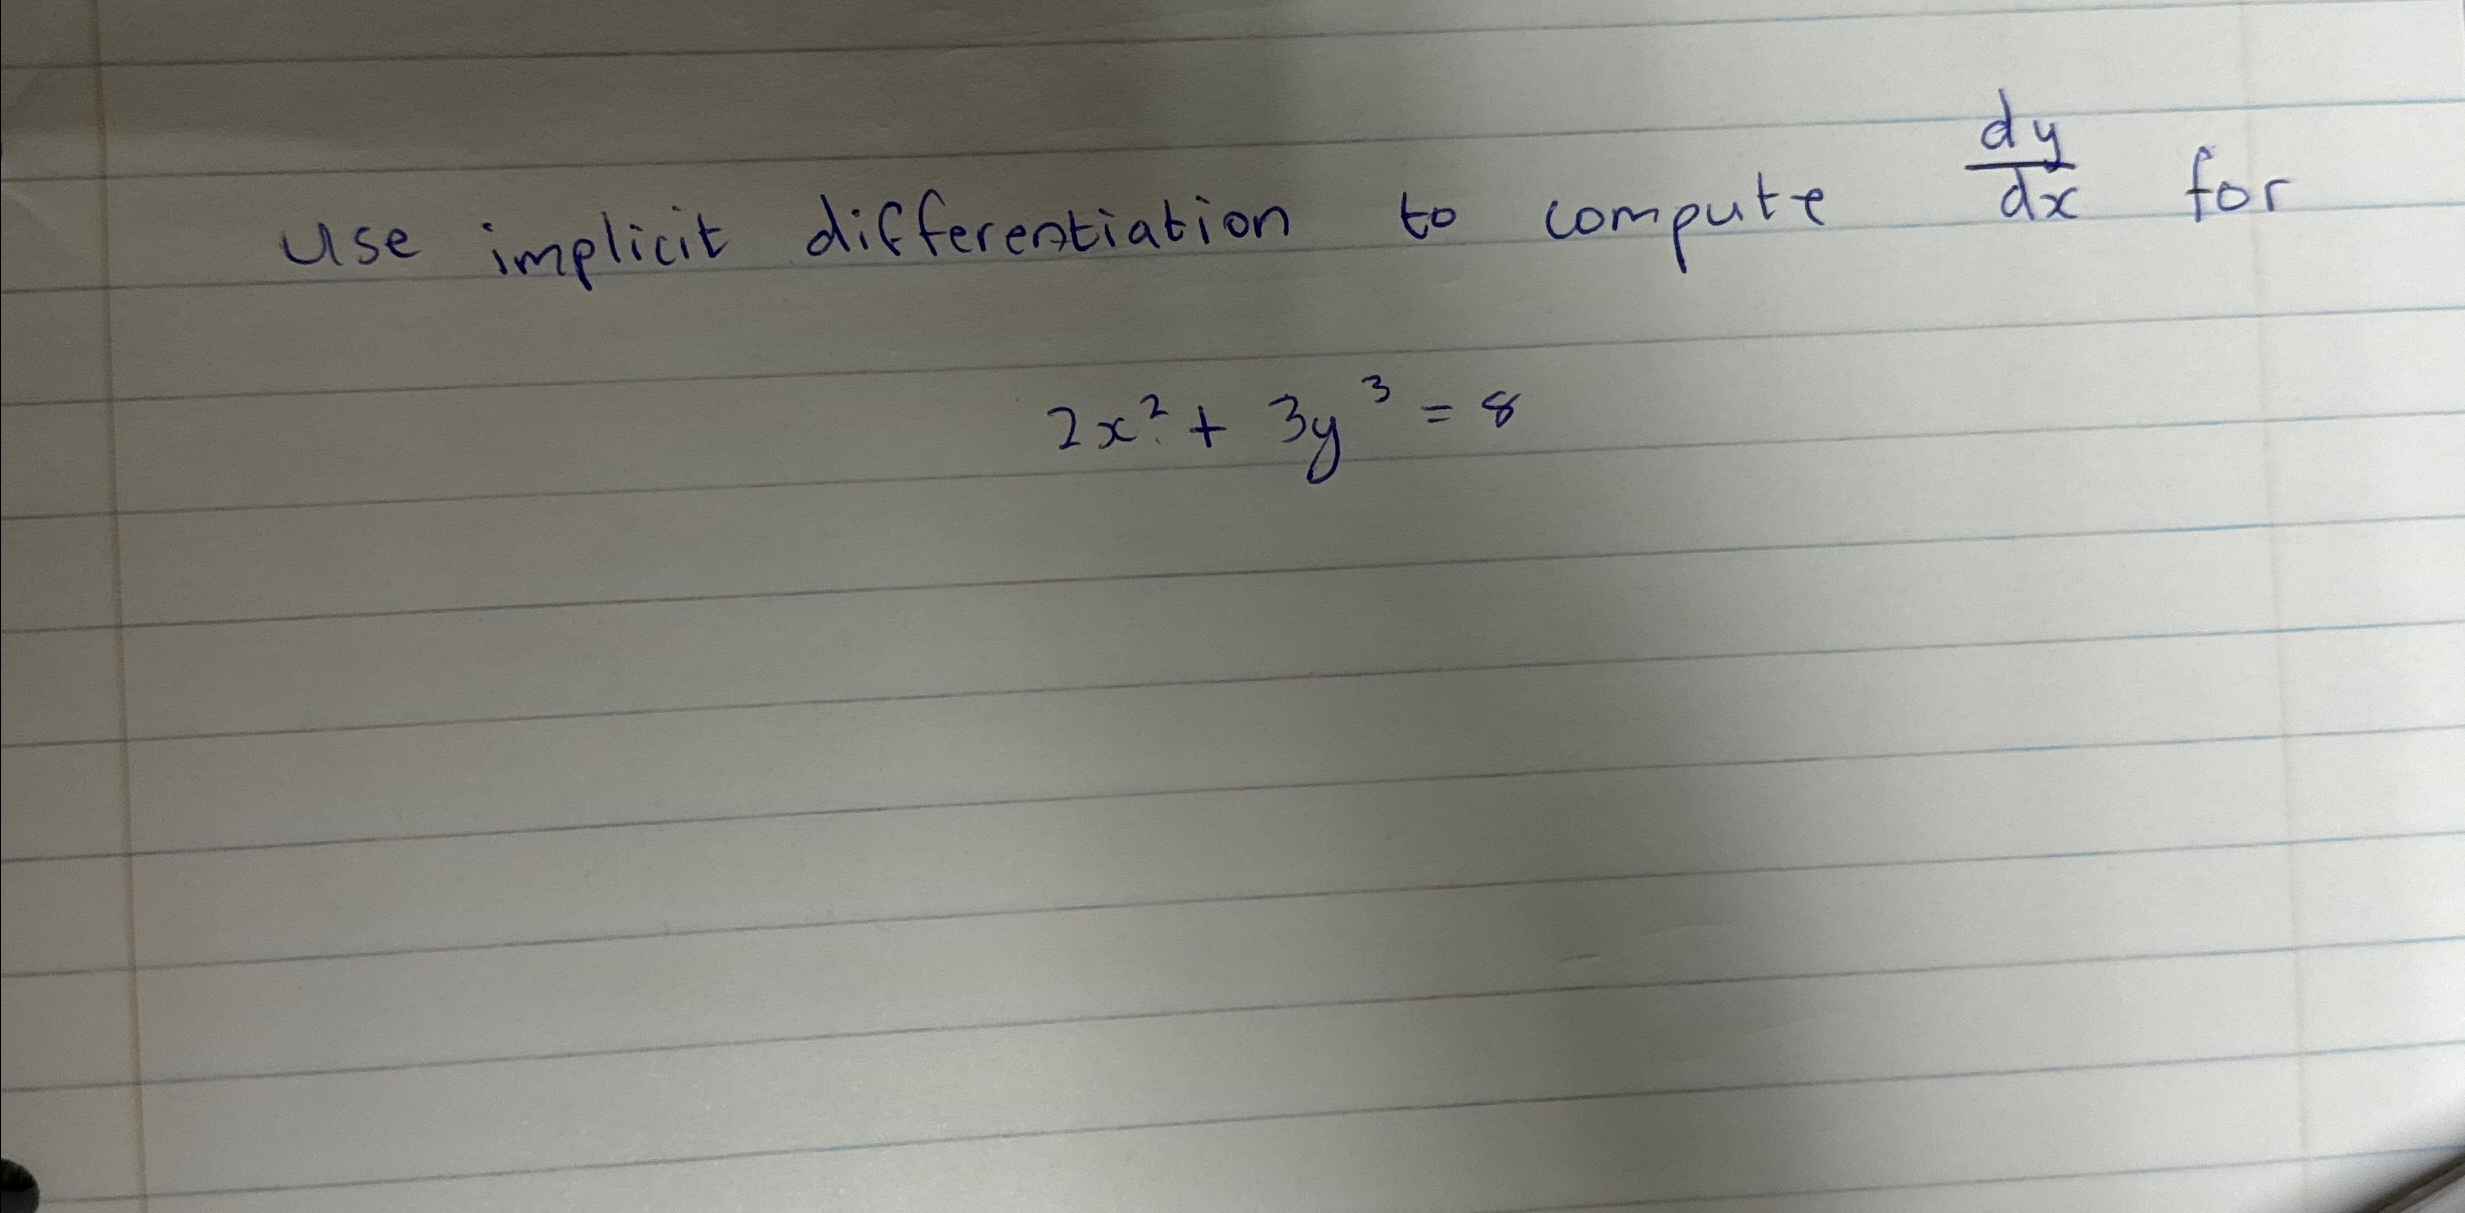 Use implicit differentiation to compute dy/dx for
2x² + 3y³ = 8